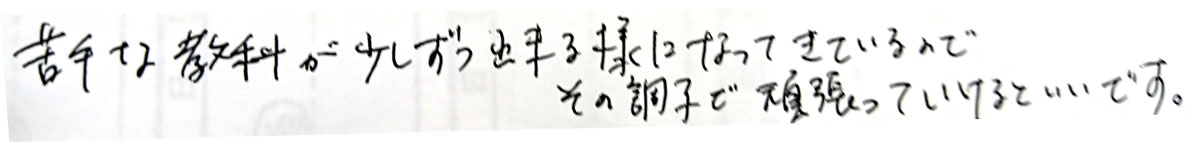 苦手な教科が少しずつ出来る様になってきているので
その調子で頑張っていけるといいです。